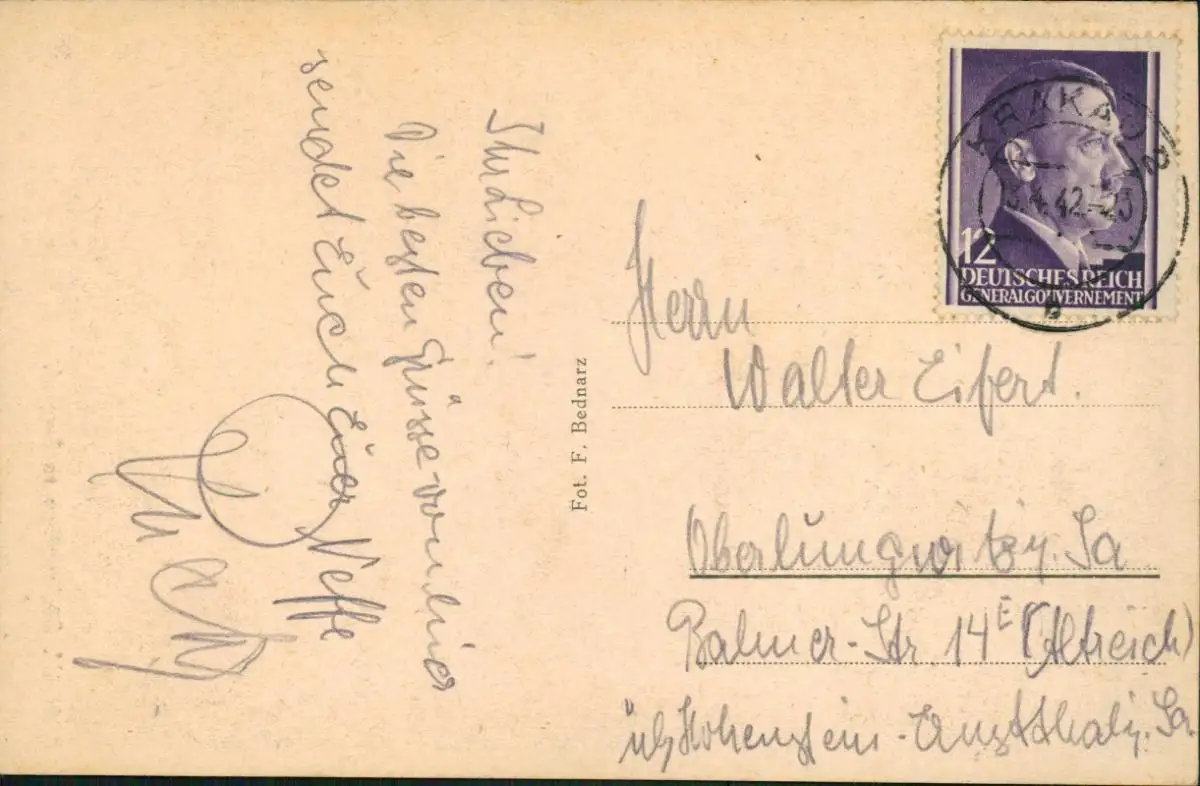 Ihr Lieben!
Die besten Grüsse von hier
sendet Euch Euer Neffe
Fot. F. Bednarz
KRAKAU 2
.4.42.-23
12
DEUTSCHES REICH
GENERALGOUVERNEMENT
Herrn
Walter Eifert.
Oberlungwitz i. Sa
Palmer-Str. 14E (Altreich)
üb/Hohenstein-Ernstthal i. Sa.